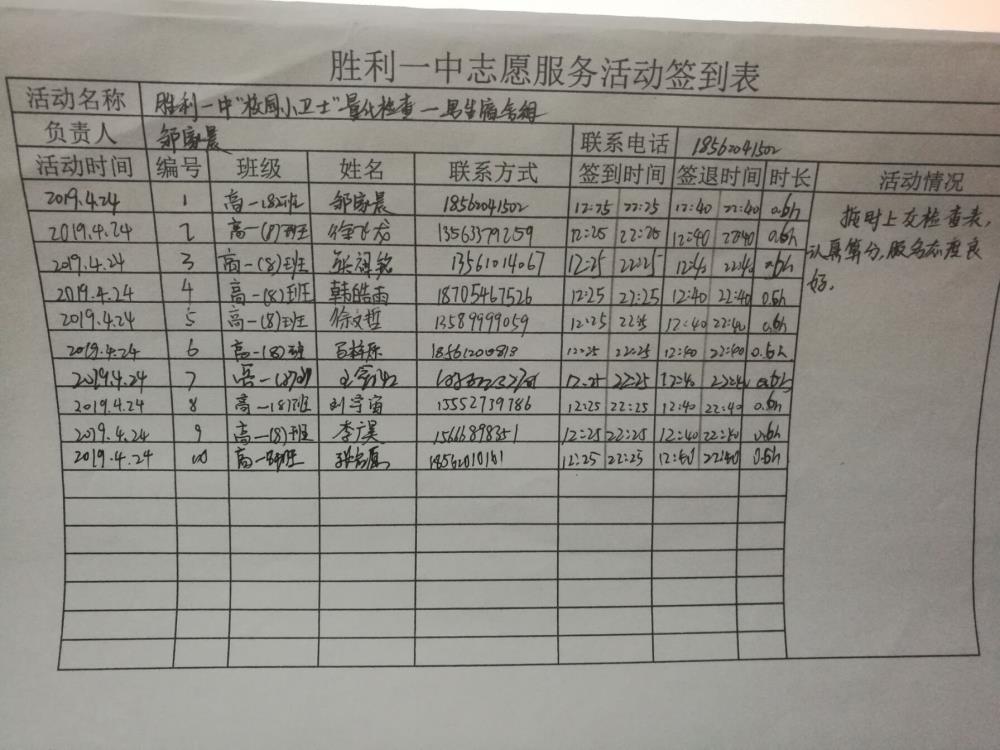 胜利一中志愿服务活动签到表
活动名称 胜利一中"校园小卫士"量化检查一男生宿舍组
负责人 邹家晨 联系电话 18562041502
活动时间 编号 班级 姓名 联系方式 签到时间 签退时间 时长 活动情况
2019.4.24 1 高一(8)班 邹家晨 18562041502 12:25 22:25 12:40 22:40 0.5h
2019.4.24 2 高一(8)班 徐飞龙 13563379259 12:25 22:25 12:40 22:40 0.5h
2019.4.24 3 高一(8)班 13561014067 12:25 22:25 12:40 22:40 0.5h
2019.4.24 4 高一(8)班 韩皓雨 18705467526 12:25 22:25 12:40 22:40 0.5h
2019.4.24 5 高一(8)班 徐文哲 13589999059 12:25 22:25 12:40 22:40 0.5h
2019.4.24 6 高一(8)班 12:25 22:25 12:40 22:40 0.5h
2019.4.24 7 高一(8)班 12:25 22:25 12:40 22:40 0.5h
2019.4.24 8 高一(8)班 刘宇宙 15552739786 12:25 22:25 12:40 22:40 0.5h
2019.4.24 9 高一(8)班 李广昊 1566898351 12:25 22:25 12:40 22:40 0.5h
2019.4.24 10 高一8班 12:25 22:25 12:40 22:40 0.5h
按时上交检查表,
认真算分,服务态度良
好.